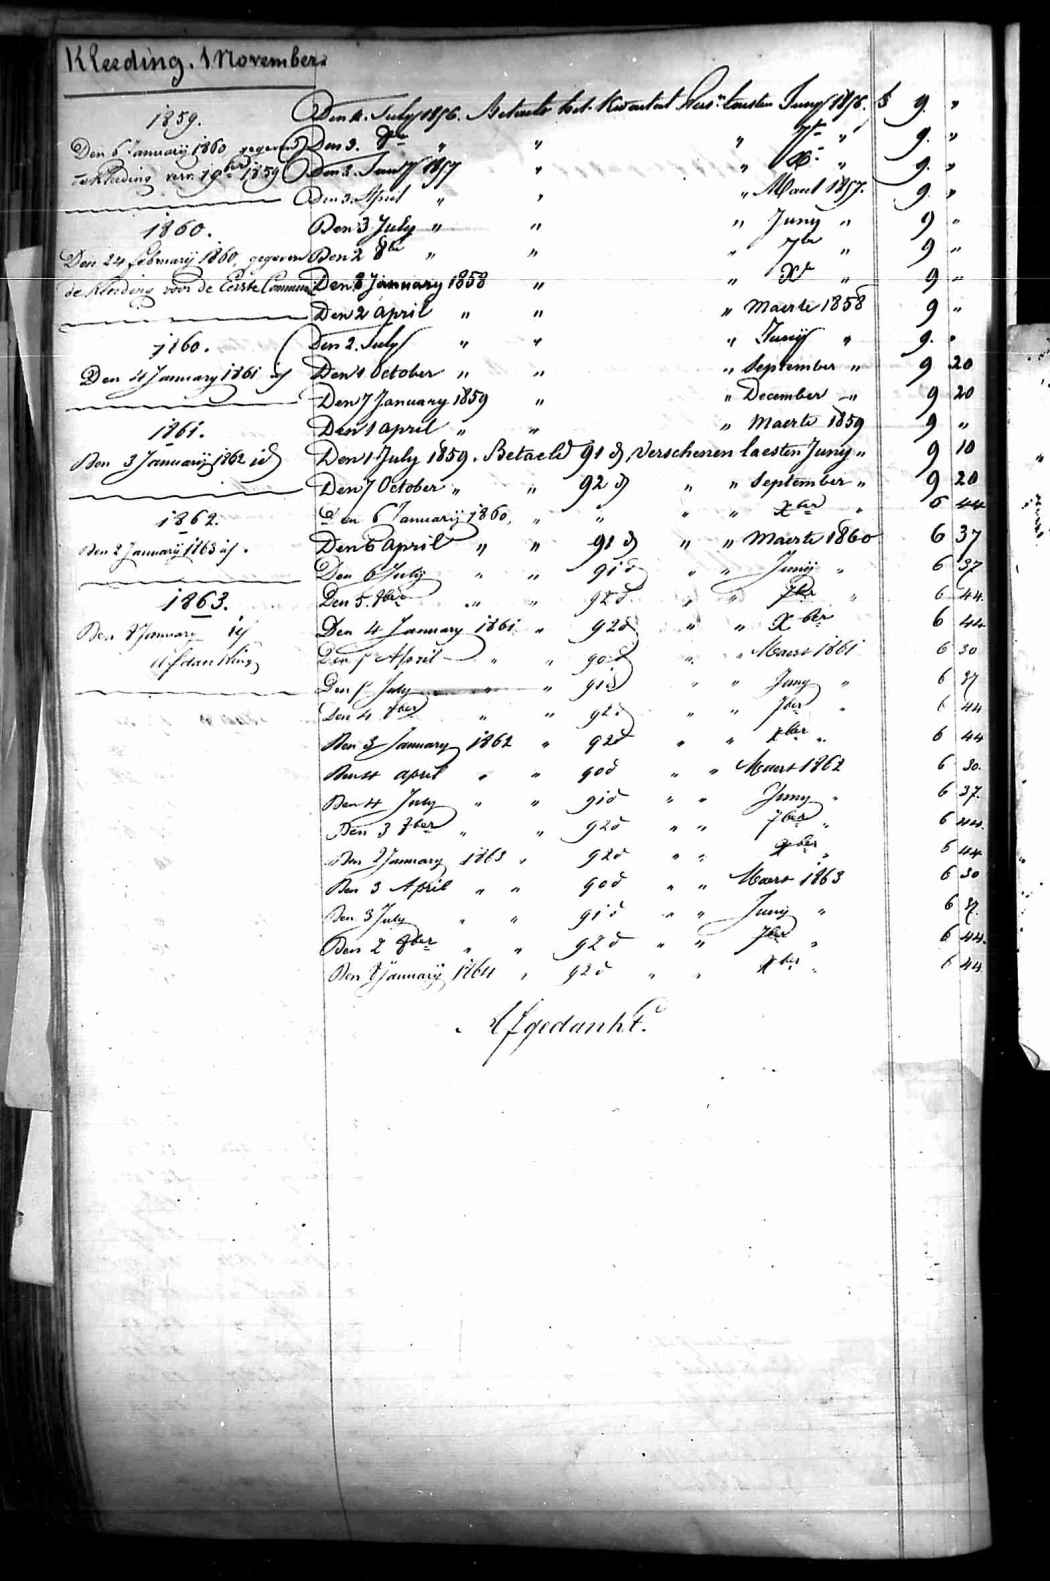 Kleeding. 1 November.
1859.
Den 6 January 1860 gegeven
de kleeding 1859
1860.
Den 24 February 1860, gegeven
de kleeding voor de Eerste Commun
1160.
Den 4 January 1861 id
1861.
Den 3 January 1862 id
1862.
Den 2 January 1163 id.
1863.
Den 2 January id
Afdanking
Den 4. July 1856. Betaelt het Kwartael laesten Juny 1856. $ 9. "
Den 3. 8bre " " " 7bre " 9. "
Den 2. January 1857 " " Xbre " 9. "
Den 3. April " " " Maert 1857. 9. "
Den 3 July " " " Juny " 9 "
Den 2 8bre " " " 7bre " 9 "
Den 8 January 1858 " " Xr " 9 "
Den 2 april " " " Maerte 1858 9 "
Den 2. July " " " Junij " 9. "
Den 1 October " " " September " 9 20
Den 7 January 1859 " " December " 9 20
Den 1 april " " " Maerte 1859 9 "
Den 1 July 1859. Betaeld 91 d, Verschenen laesten Juny " 9 10
Den 7 October " " 92 d " " September " 9 20
Den 6 Januarij 1860, " " " " Xber " 6 44
Den 6 April " " 91 d " " Maerte 1860 6 37
Den 6 July " " 91 d " " Junij " 6 37
Den 5. 8bre " " 92 d " " 7bre " 6 44
Den 4 January 1861 " 92 d " " Xber 6 44
Den 5 April " " 90 d " " Maert 1861 6 30
Den 5 July " " 91 d " " Juny " 6 37
Den 4 8ber " " 92 d " " 7ber " 6 44
Den 3 January 1862 " 92 d " " Xber " 6 44
Den 4 april " " 90 d " " Maert 1862 6 30.
Den 4 July " " 91 d " " Juny " 6 37.
Den 3 8ber " " 92 d " " 7ber " 6 44.
Den 2 January 1863 " 92 d " " Xber " 6 44
Den 3 April " " 90 d " " Maert 1863 6 30
Den 3 July " " 91 d " " Junij " 6 37.
Den 2 8ber " " 92 d " " 7ber " 6 44.
Den 2 Januarij 1864 " 92 d " " Xber " 6 44
Afgedankt.